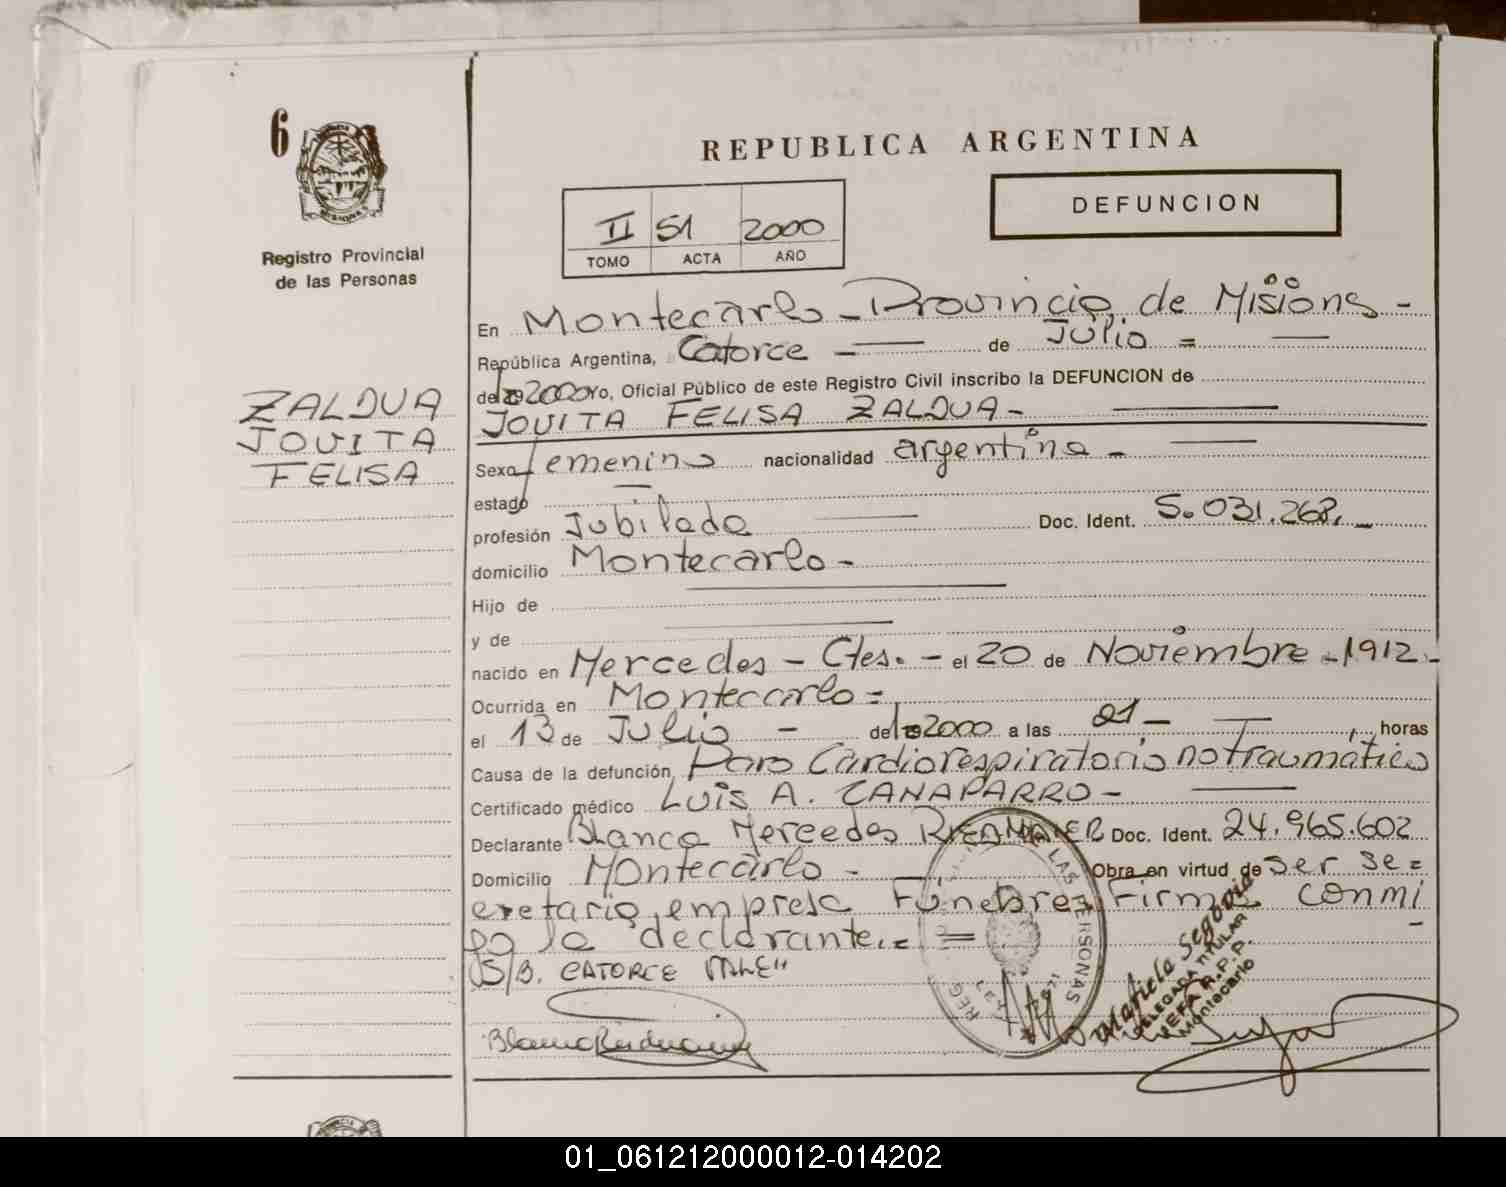 6
REPUBLICA ARGENTINA
DEFUNCION
II 51 2000
TOMO ACTA AÑO
Registro Provincial
de las Personas
ZALDUA
JOVITA
FELISA
En Montecarlo - Provincia de Misiones -
República Argentina, Catorce = de Julio =
del 2000 yo, Oficial Público de este Registro Civil inscribo la DEFUNCION de
JOVITA FELISA ZALDUA -
Sexo femenino nacionalidad argentina -
estado —
profesión Jubilada Doc. Ident. 5.031.268.-
domicilio Montecarlo -
Hijo de
y de
nacido en Mercedes - Ctes. - el 20 de Noviembre - 1912.-
Ocurrida en Montecarlo =
el 13 de Julio - del 2000 a las 21 - , horas
Causa de la defunción Paro Cardiorespiratorio no Traumático
Certificado médico LUIS A. CANAPARRO -
Declarante Blanca Mercedes Doc. Ident. 24.965.602
Domicilio Montecarlo - Obra en virtud de ser se=
cretario, empresa Fúnebre, Firma conmi
go la declarante.= =
S/B. CATORCE VALE"
REG LAS PERSONAS
Mafiela Segovia
DELEGADA TITULAR
JEFA R.P.P.
Montecarlo
01_061212000012-014202